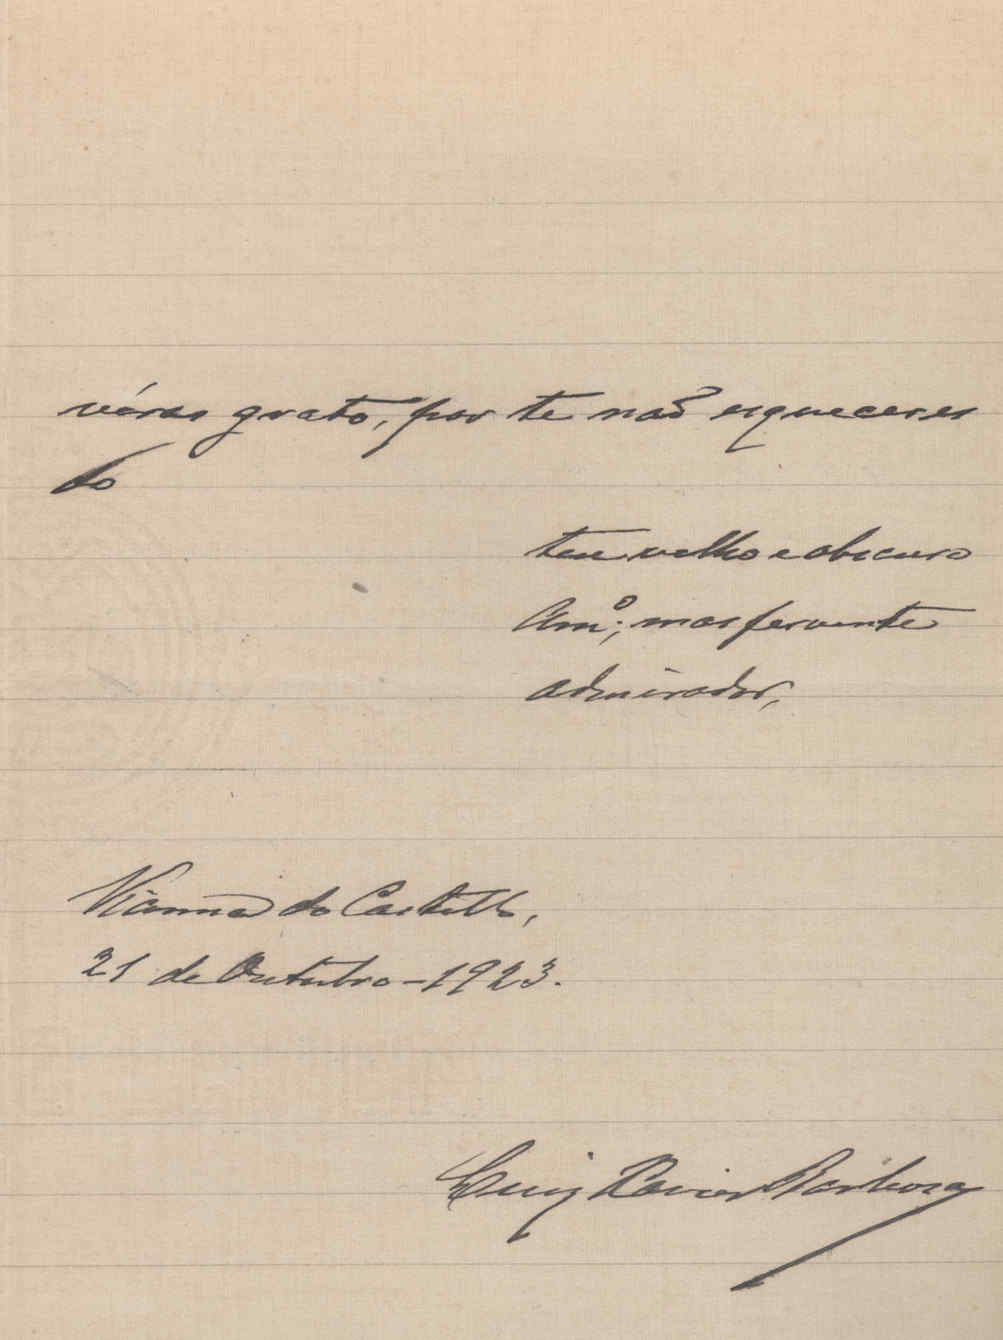 véras grato, por te não esqueceres
do
teu velho e obscuro
Amº; mas fervente
admirador,
Vianna do Castello,
21 de Outubro - 1923.
Luiz Xavier Barbosa